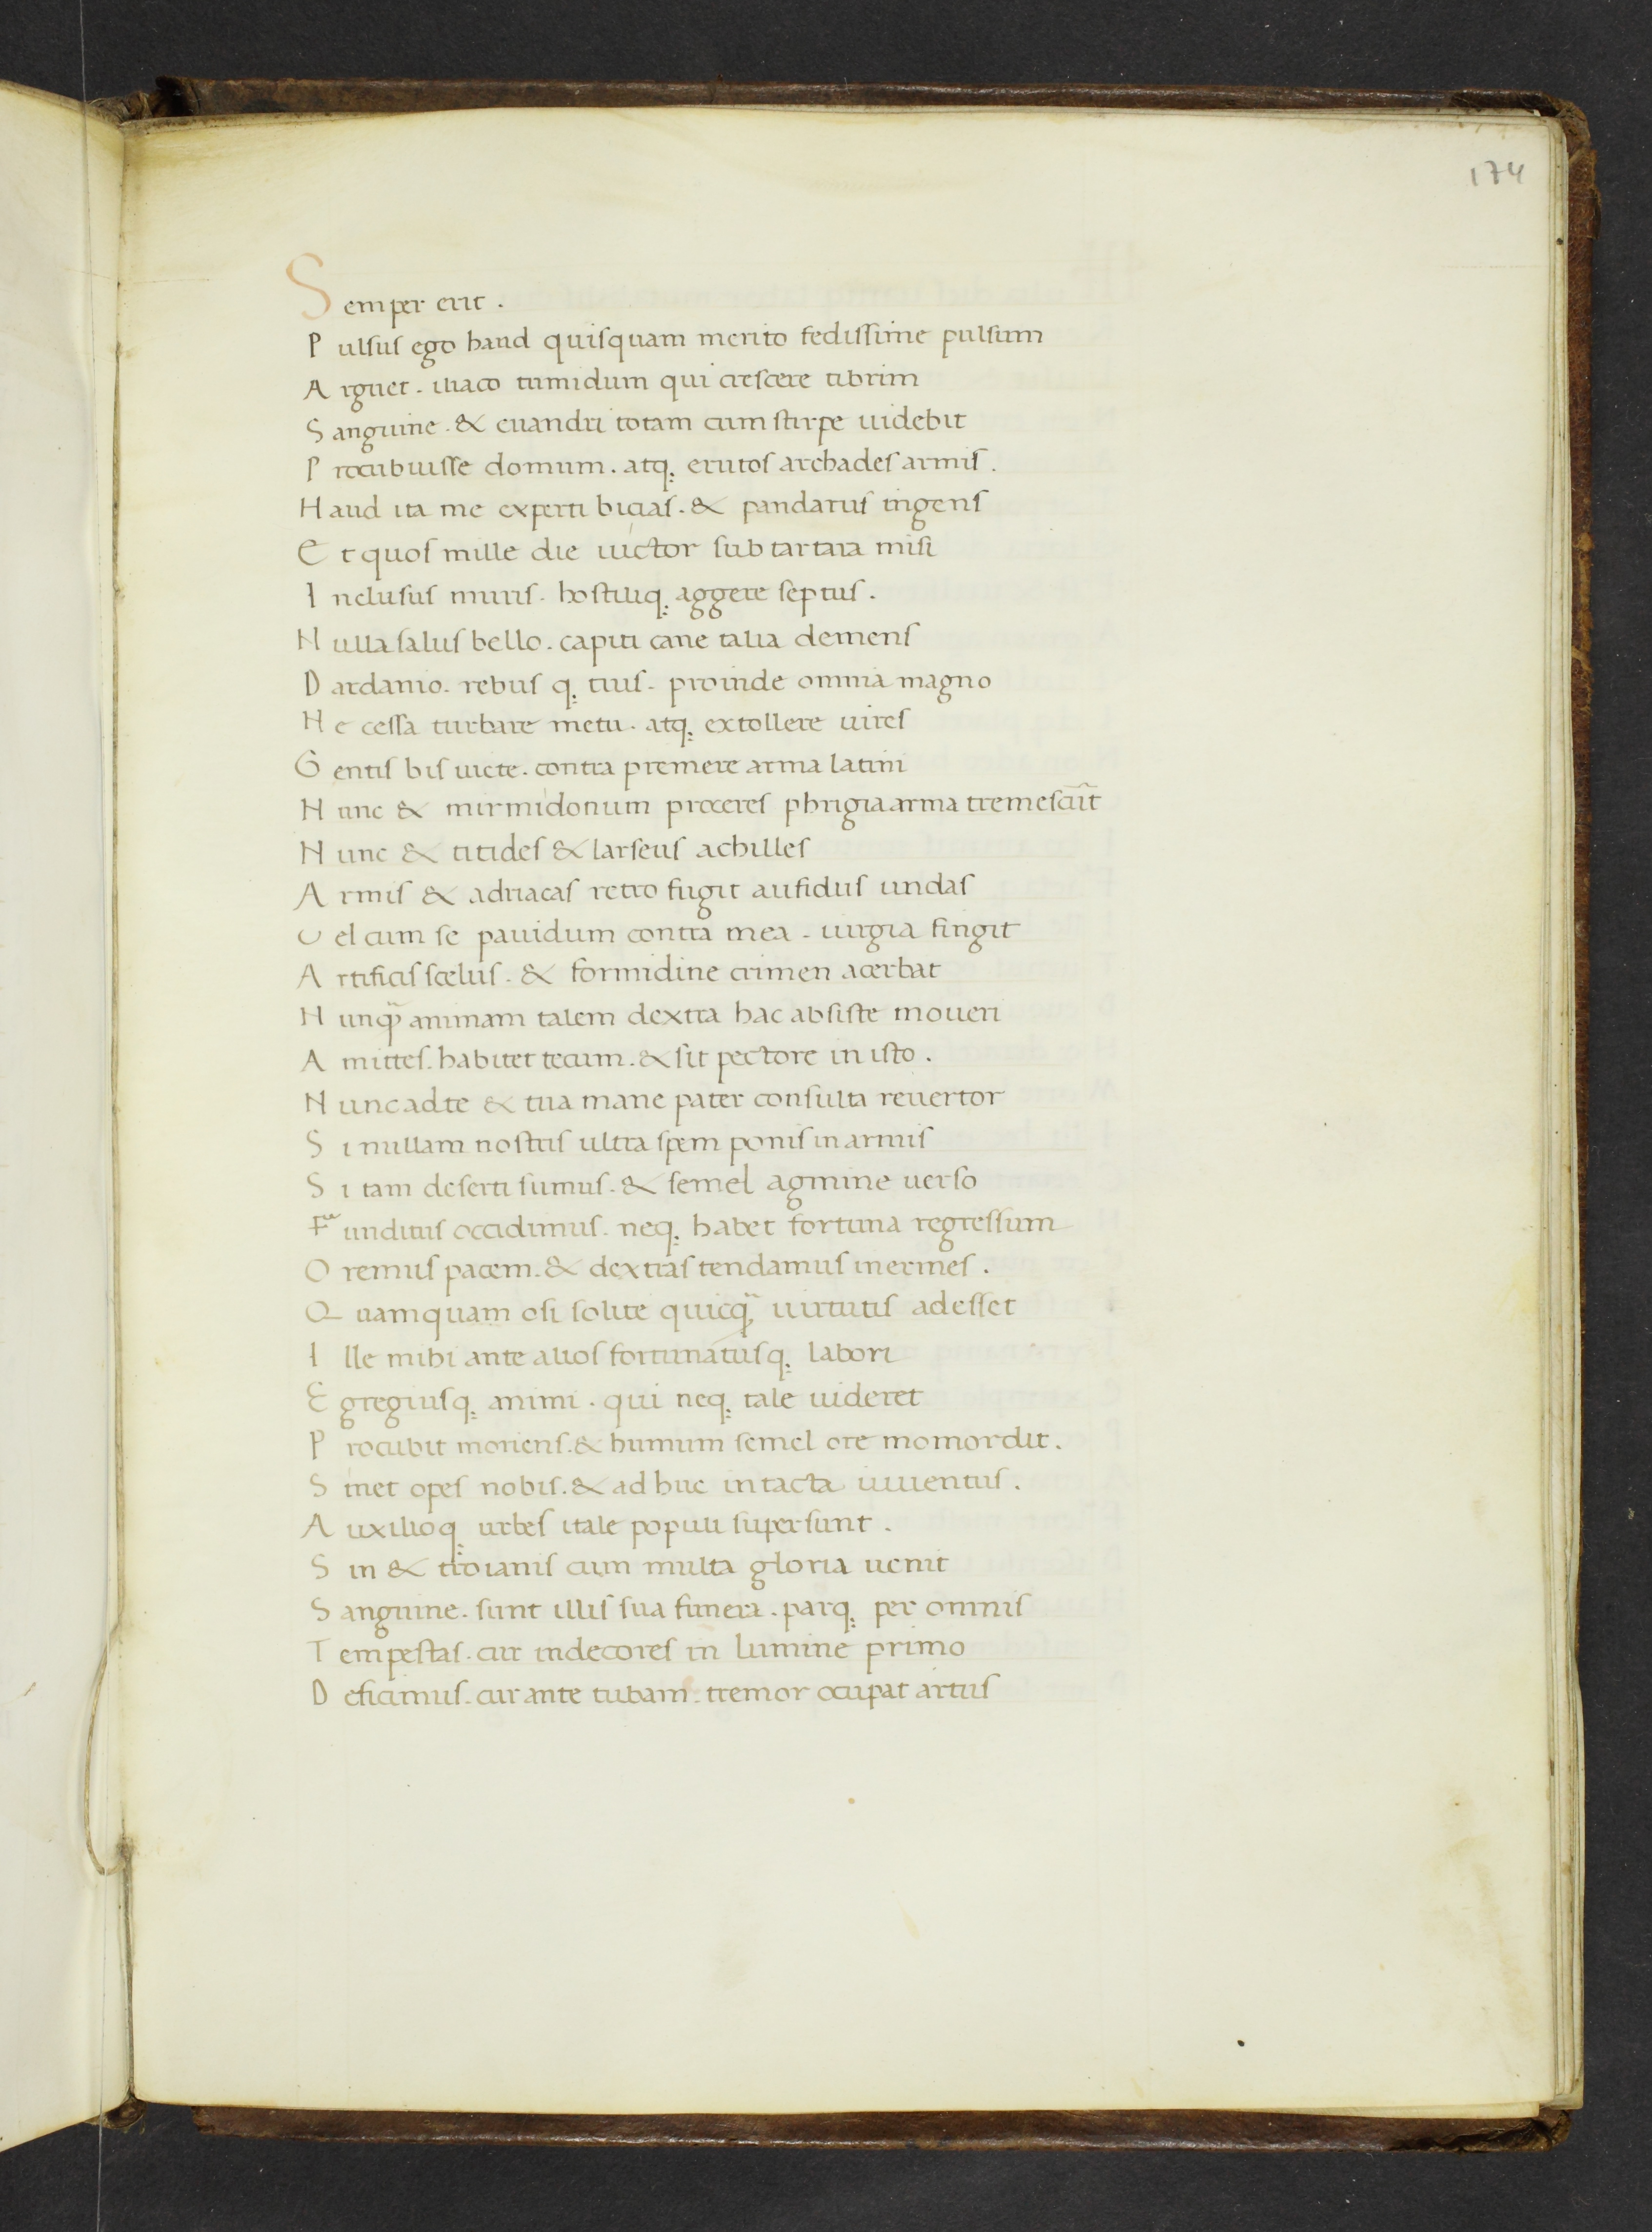 174
Semper erit.
Pulsus ego haud quisquam merito fedissime pulsum
Arguet. iliaco tumidum qui crescere tibrim
Sanguine. & euandri totam cum stirpe uidebit
Procubuisse domum. atq; erutos archades armis.
Haud ita me experti bicias. & pandarus ingens
Et quos mille die uictor sub tartara misi
Inclusus muris. hostiliq; aggere septus.
Nulla salus bello. capiti cane talia demens
Dardanio. rebus q; tuis. proinde omnia magno
Ne cessa turbare metu. atq; extollere uires
Gentis bis uicte. contra premere arma latini
Nunc & mirmidonum proceres phrigia arma tremescūt
Nunc & titides & larseus achilles
Armis & adriacas retro fugit aufidus undas
Vel cum se pauidum contra mea. uirgia fingit
Artificis scelus. & formidine crimen acerbat
Nunq̃ animam talem dextra hac absiste moueri
Amittes. habitet tecum. & sit pectore in isto.
Nunc ad te & tua mane pater consulta reuertor
Si nullam nostris ultra spem ponis in armis
Si tam deserti sumus. & semel agmine uerso
Funditus occidimus. neq; habet fortuna regressum
Oremus pacem. & dextras tendamus inermes.
Quamquam osi solite quicq̃ uirtutis adesset
Ille mihi ante alios fortunatusq; labori
Egregiusq; animi. qui neq; tale uideret
Procubit moriens. & humum semel ore momordit.
Sinet opes nobis. & ad huc intacta iuuentus.
Auxilioq; urbes itale populi supersunt.
Sin & troianis cum multa gloria uenit
Sanguine. sunt illis sua funera. parq; per omnis
Tempestas. cur indecores in lumine primo
Deficimus. cur ante tubam. tremor ocupat artus